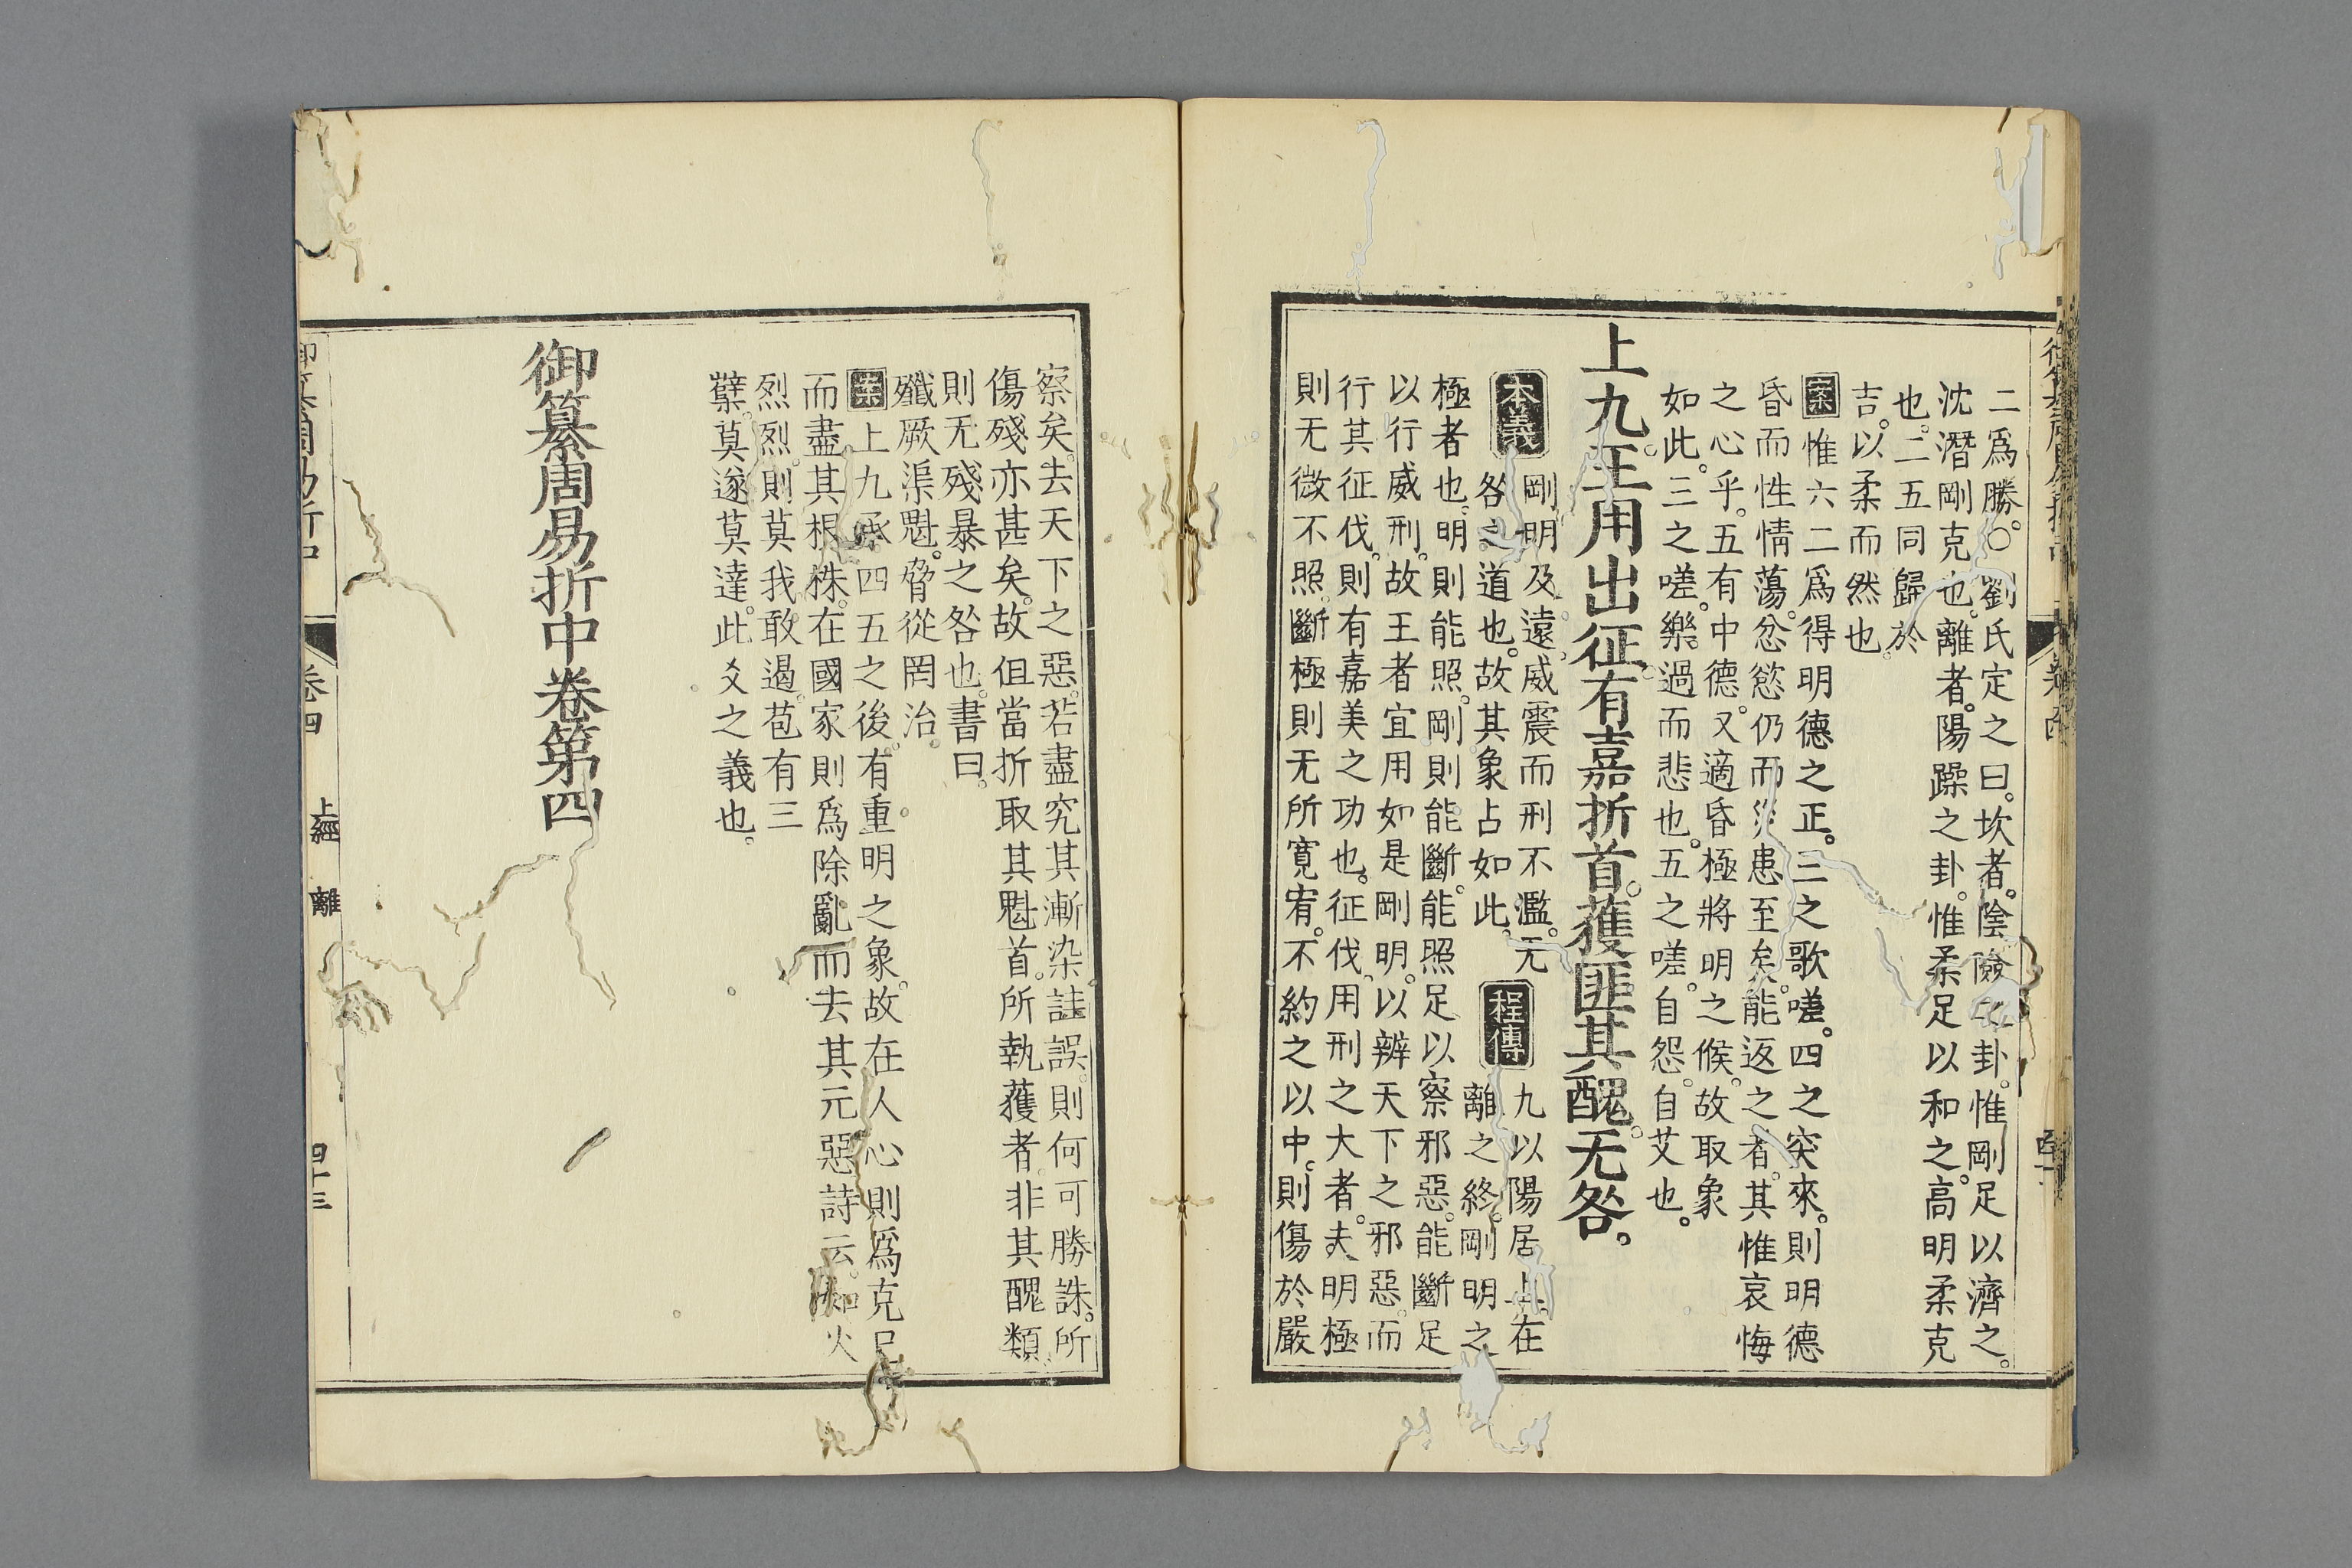 二爲勝。○劉氏定之曰。坎者。陰險之卦。惟剛足以濟之。
沈潛剛克也。離者。陽躁之卦。惟柔足以和之。高明柔克
也。二五同歸於
吉。以柔而然也。
案 惟六二爲得明德之正。三之歌嗟。四之突來。則明德
昏而性情蕩。忿慾仍而災患至矣。能返之者。其惟哀悔
之心乎。五有中德。又適昏極將明之候。故取象
如此。三之嗟。樂過而悲也。五之嗟。自怨自艾也。
上九。王用出征。有嘉折首。獲匪其醜。无咎。
本義 剛明及遠。威震而刑不濫。无
咎之道也。故其象占如此。
程傳 九以陽居上。在
離之終。剛明之
極者也。明則能照。剛則能斷。能照足以察邪惡。能斷足
以行威刑。故王者宜用如是剛明。以辨天下之邪惡。而
行其征伐。則有嘉美之功也。征伐。用刑之大者。夫明極
則无微不照。斷極則无所寛宥。不約之以中。則傷於嚴
察矣。去天下之惡。若盡究其漸染詿誤。則何可勝誅。所
傷殘亦甚矣。故但當折取其魁首。所執獲者。非其醜類。
則无殘暴之咎也。書曰。
殲厥渠魁。脅從罔治。
案 上九承四五之後。有重明之象。故在人心則爲克己
而盡其根株。在國家則爲除亂而去其元惡。詩云。如火
烈烈。則莫我敢遏。苞有三
櫱。莫遂莫達。此爻之義也。
御纂周易折中卷第四
卷四
上經
離
四十三